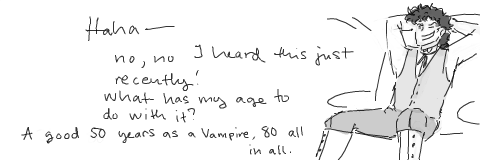 Haha—
no, no I heard this just
recently!
what has my age to
do with it?
A good 50 years as a Vampire, 80 all
in all.